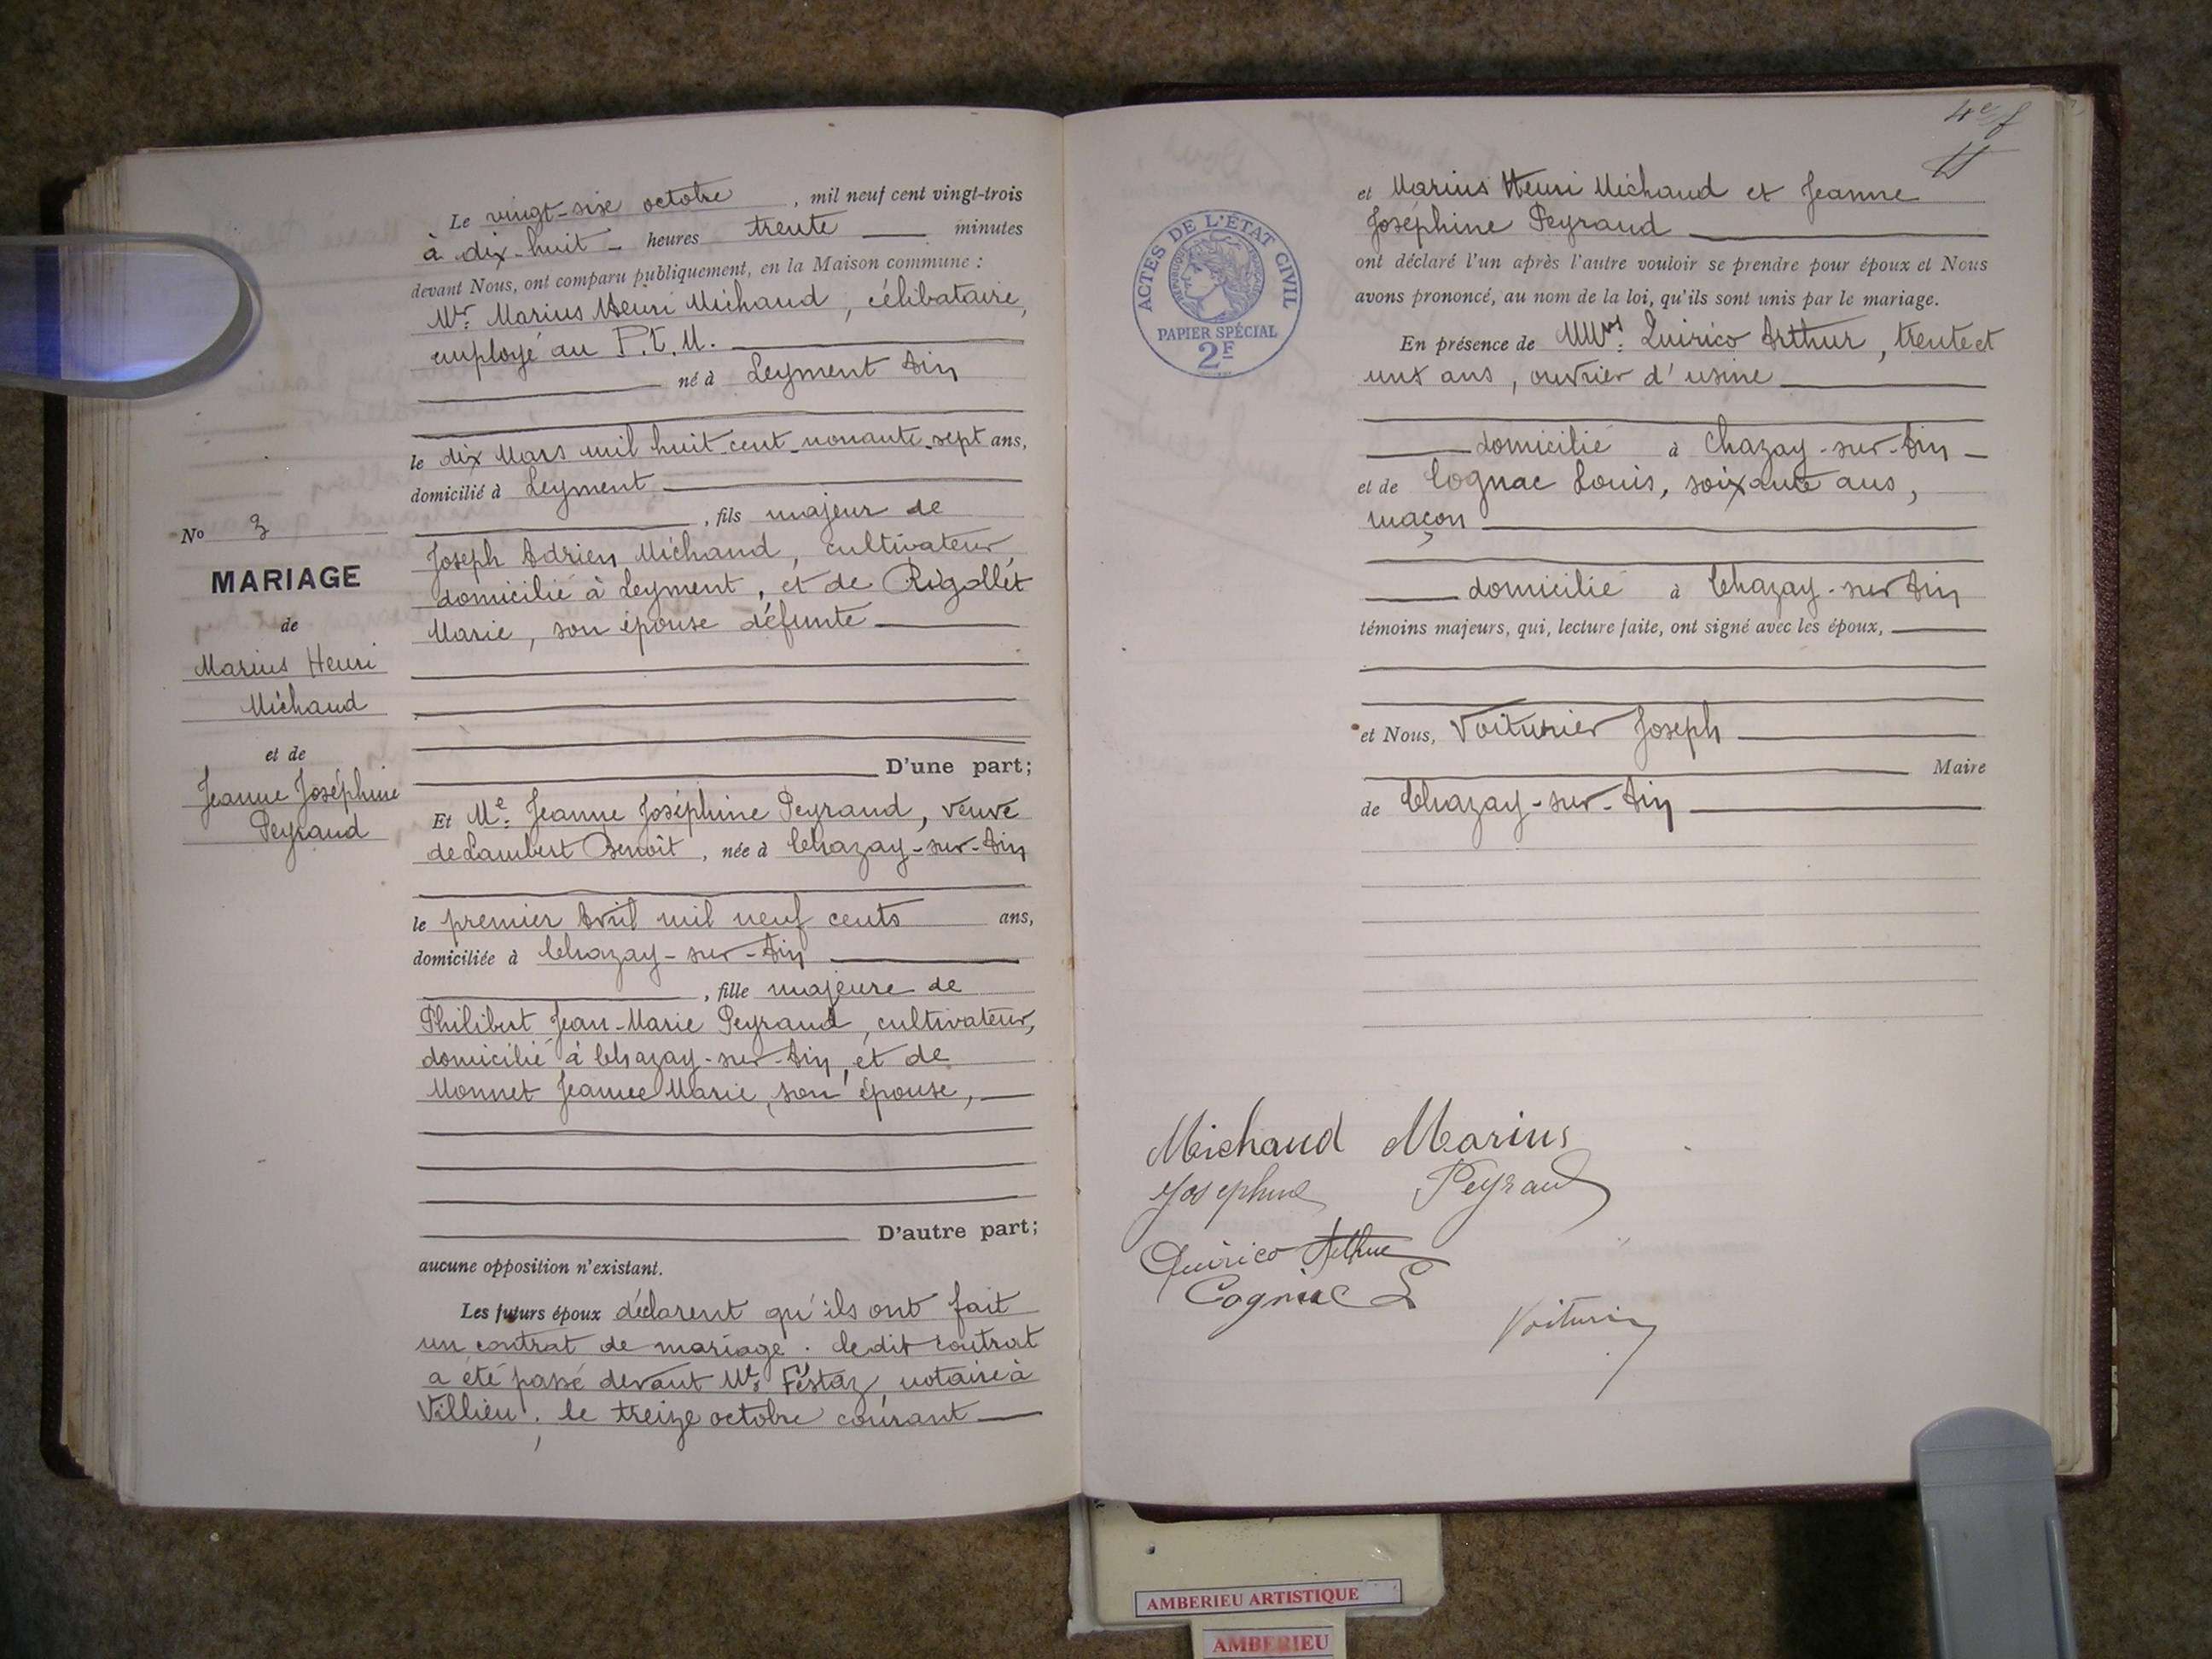 Le vingt-six octobre, mil neuf cent vingt-trois
à dix-huit - heures trente minutes
devant Nous, ont comparu publiquement, en la Maison commune :
Mr. Marius Henri Michaud, célibataire,
employé au P.L.M.
né à Leyment Ain
le dix Mars mil huit-cent-nonante-sept ans,
domicilié à Leyment
, fils majeur de
Joseph Adrien Michaud, cultivateur,
domicilié à Leyment, et de Rigollet
Marie, son épouse défunte
D'une part;
No 3
MARIAGE
de
Marius Henri
Michaud
et de
Jeanne Joséphine
Peyraud
Et Me. Jeanne Joséphine Peyraud, veuve
de Lambert Benoît, née à Chazay-sur-Ain
le premier Avril mil neuf cents ans,
domiciliée à Chazay-sur-Ain
, fille majeure de
Philibert Jean-Marie Peyraud, cultivateur,
domicilié à Chazay-sur-Ain, et de
Monnet Jeanne Marie, son épouse,
D'autre part;
aucune opposition n'existant.
Les futurs époux déclarent qu'ils ont fait
un contrat de mariage. Ledit contrat
a été passé devant Me. Festaz, notaire à
Villieu, le treize octobre courant
4e f
ACTES DE L'ÉTAT CIVIL
RÉPUBLIQUE FRANÇAISE
PAPIER SPÉCIAL
2F
et Marius Henri Michaud et Jeanne
Joséphine Peyraud
ont déclaré l'un après l'autre vouloir se prendre pour époux et Nous
avons prononcé, au nom de la loi, qu'ils sont unis par le mariage.
En présence de MMrs. Quirico Arthur, trente et
uns ans, ouvrier d'usine
domicilié à Chazay-sur-Ain
et de Cognac Louis, soixante ans,
maçon
domicilié à Chazay-sur Ain
témoins majeurs, qui, lecture faite, ont signé avec les époux,
et Nous, Voiturier Joseph
Maire
de Chazay-sur-Ain
Michaud Marius
Josephine Peyraud
Quirico Arthur
Cognac L
Voiturier
AMBERIEU ARTISTIQUE
AMBERIEU